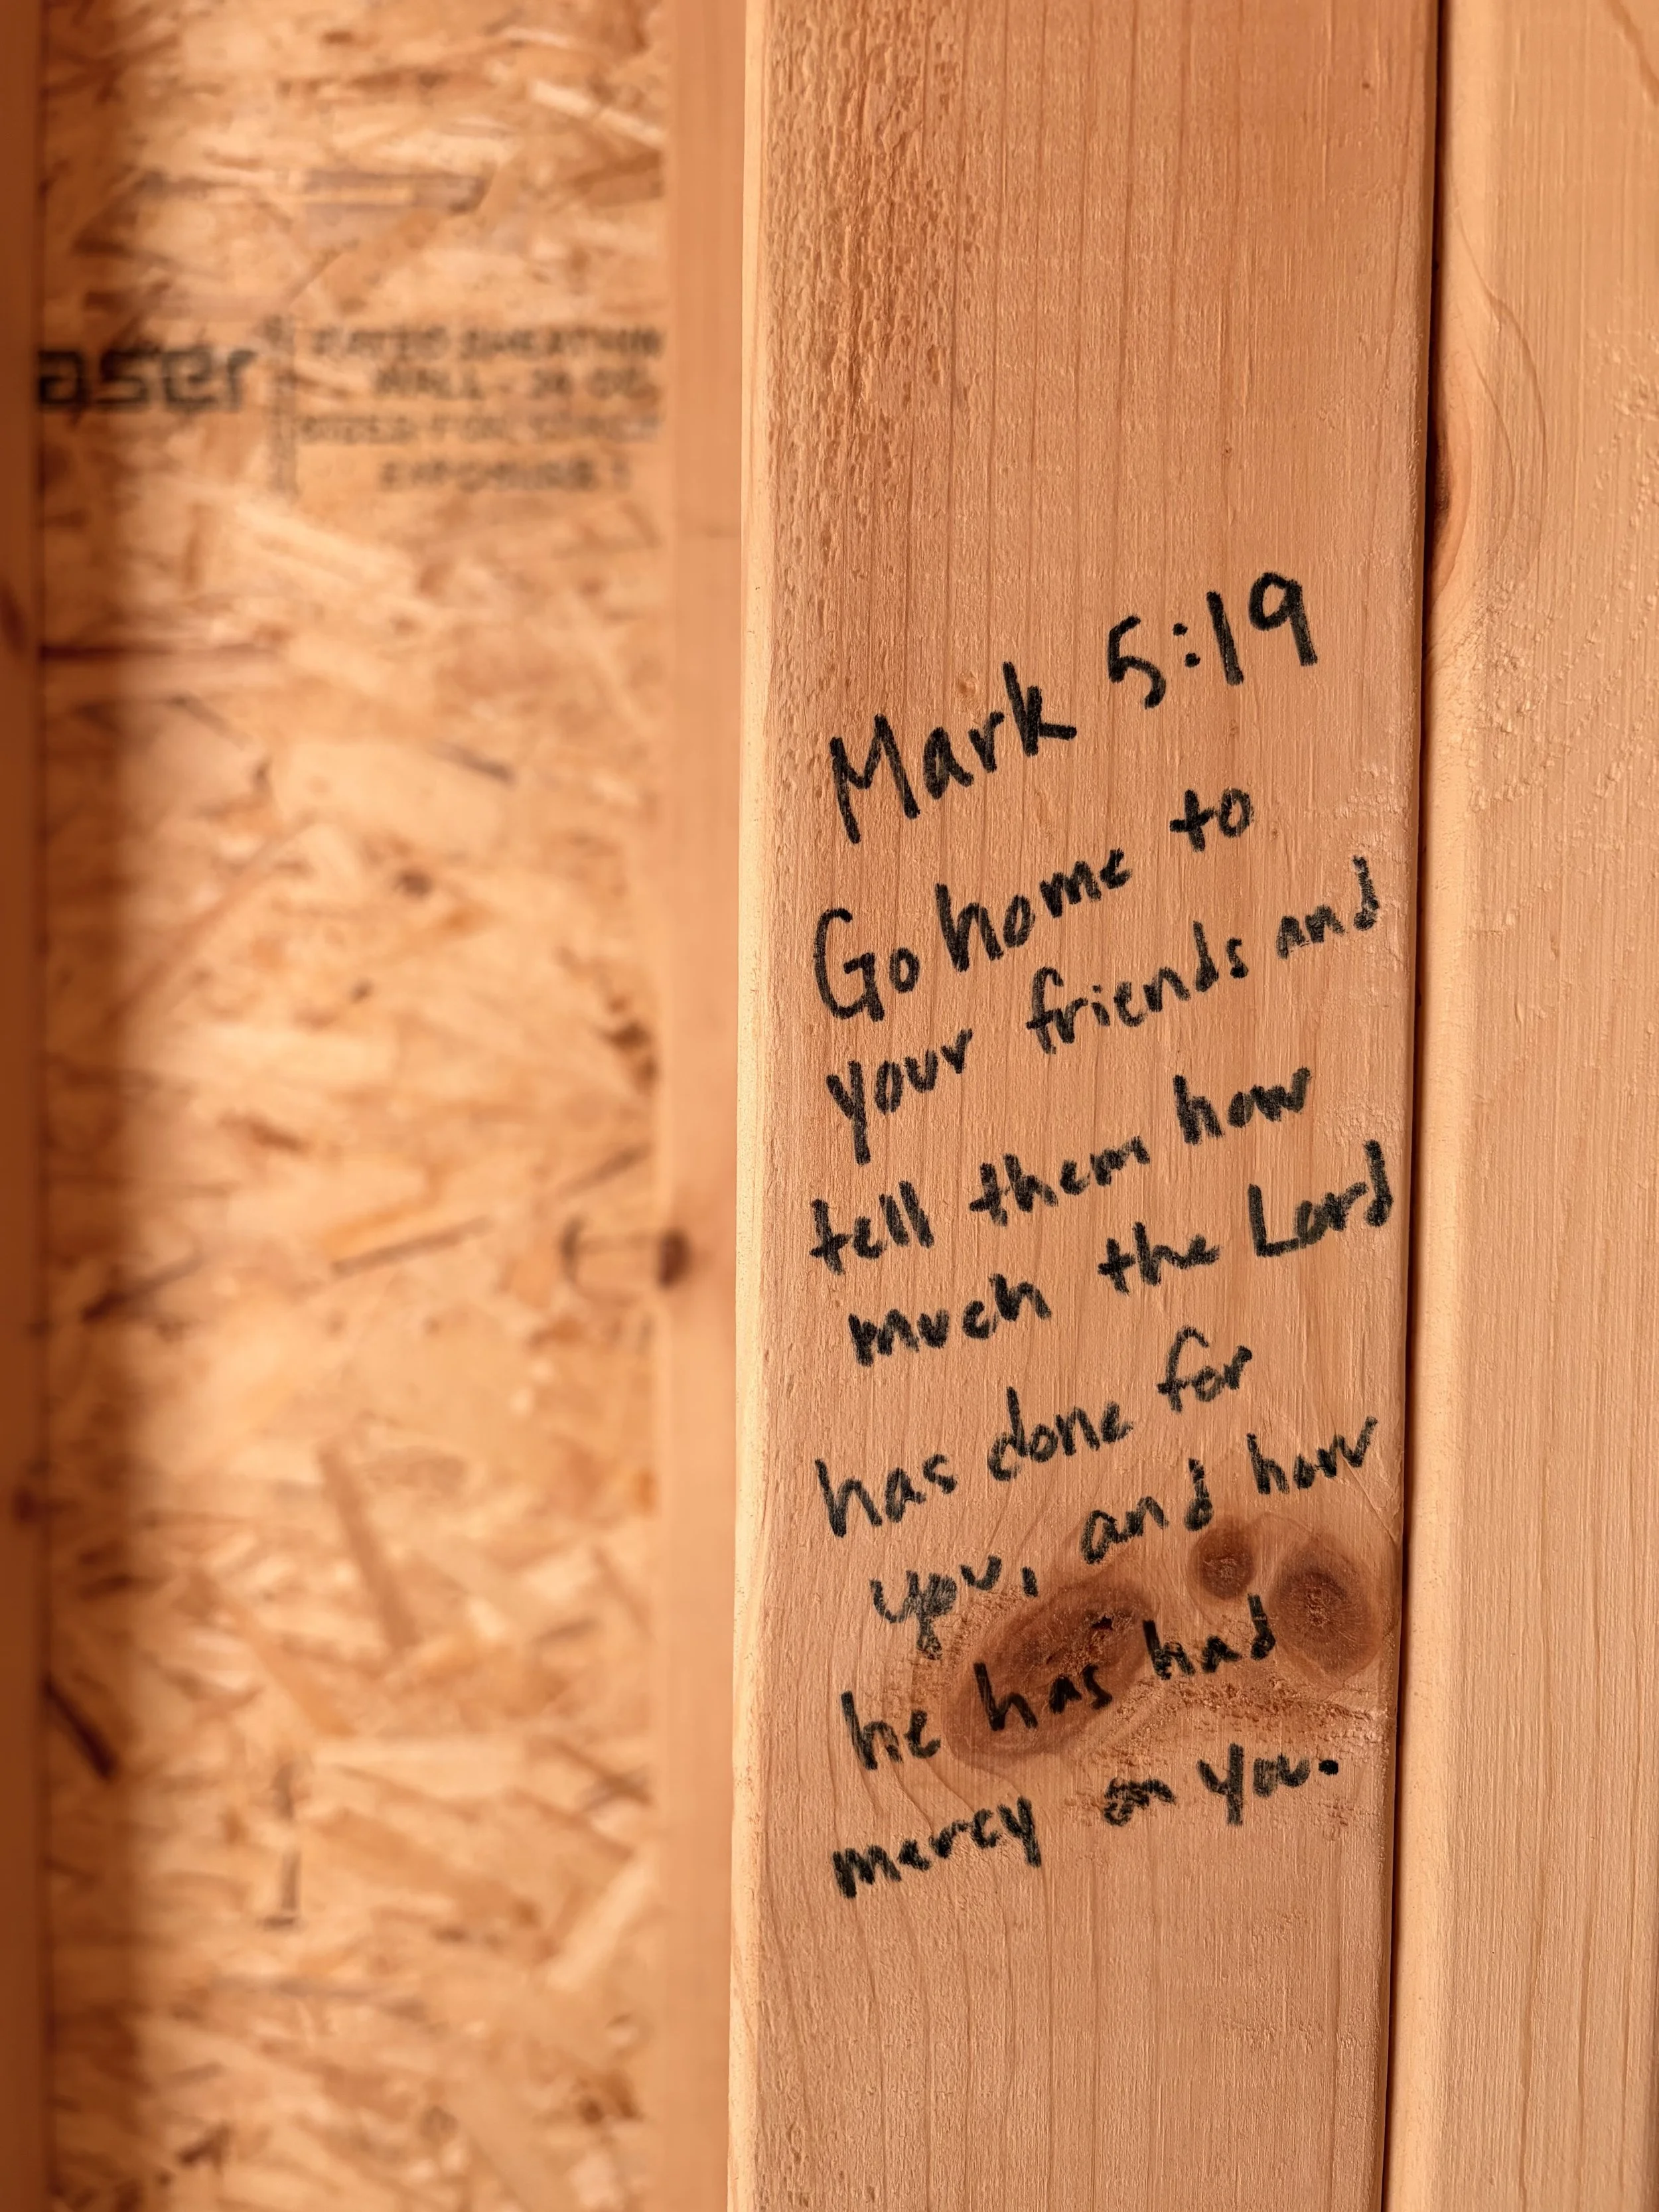 aser
RATED SHEATHIN
WALL - 24 OC
SIZED FOR SPACI
EXPOSURE 1
Mark 5:19
Go home to
your friends and
tell them how
much the Lord
has done for
you, and how
he has had
mercy on you.